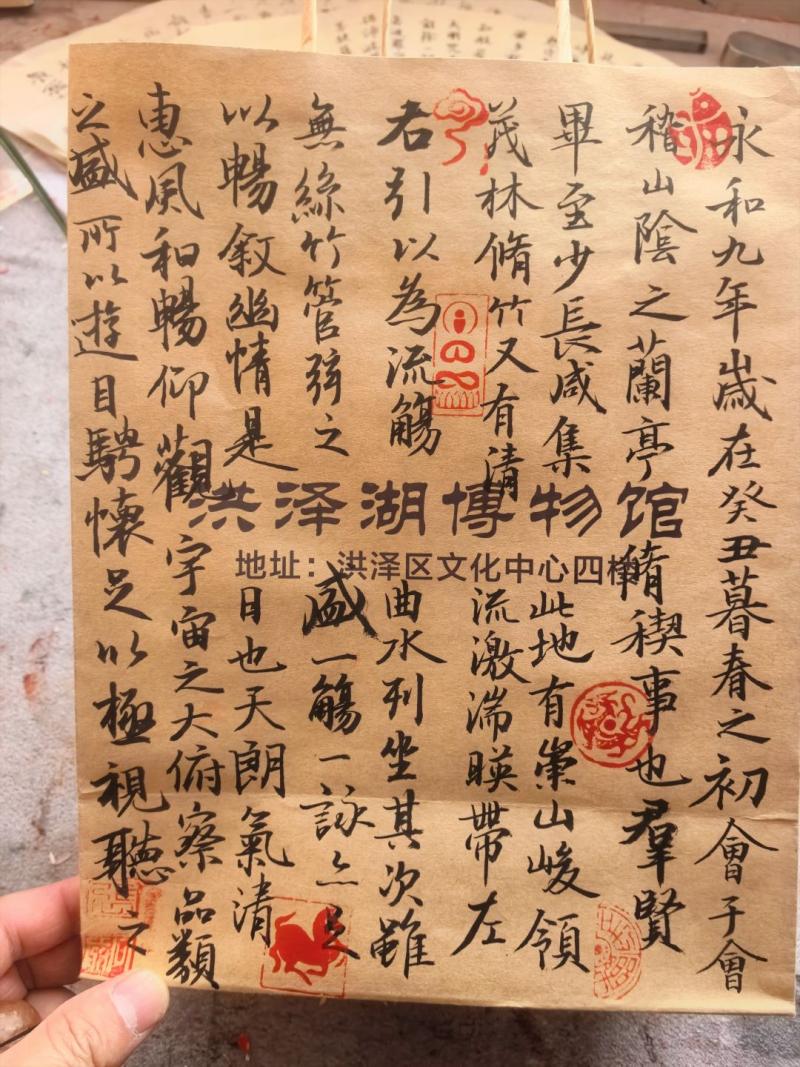 永和九年歲在癸丑暮春之初會于會
稽山陰之蘭亭脩禊事也羣賢
畢至少長咸集此地有崇山峻領
茂林脩竹又有清流激湍暎帶左
右引以為流觴曲水列坐其次雖
無絲竹管弦之盛一觴一詠亦足
以暢敘幽情是日也天朗氣清
惠風和暢仰觀宇宙之大俯察品類
之盛所以遊目騁懷足以極視聽之
洪泽湖博物馆
地址：洪泽区文化中心四楼